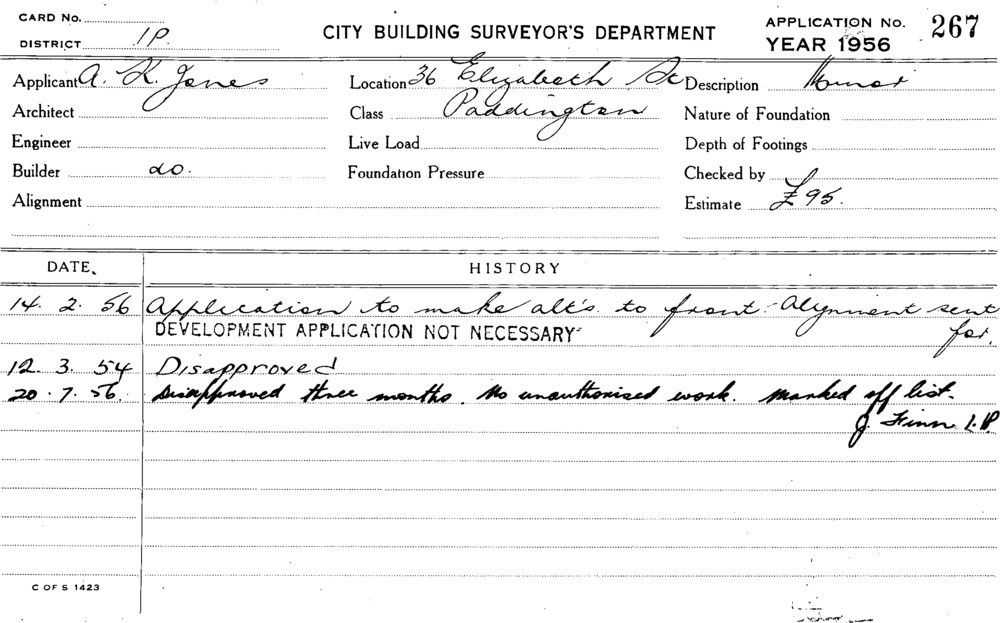 CARD No.
DISTRICT 1P.
CITY BUILDING SURVEYOR'S DEPARTMENT
APPLICATION No. 267
YEAR 1956
Applicant A. K. Jones
Location 36 Elizabeth St
Description Minor
Architect
Class Paddington
Nature of Foundation
Engineer
Live Load
Depth of Footings
Builder do.
Foundation Pressure
Checked by
Alignment
Estimate £95.
DATE.
HISTORY
14. 2. 56 Application to make alt's to front. Alignment sent
for.
DEVELOPMENT APPLICATION NOT NECESSARY
12. 3. 54 Disapproved
20. 7. 56. Disapproved three months. No unauthorised work. Marked off list.
J. Finn 1.P
C OF S 1423